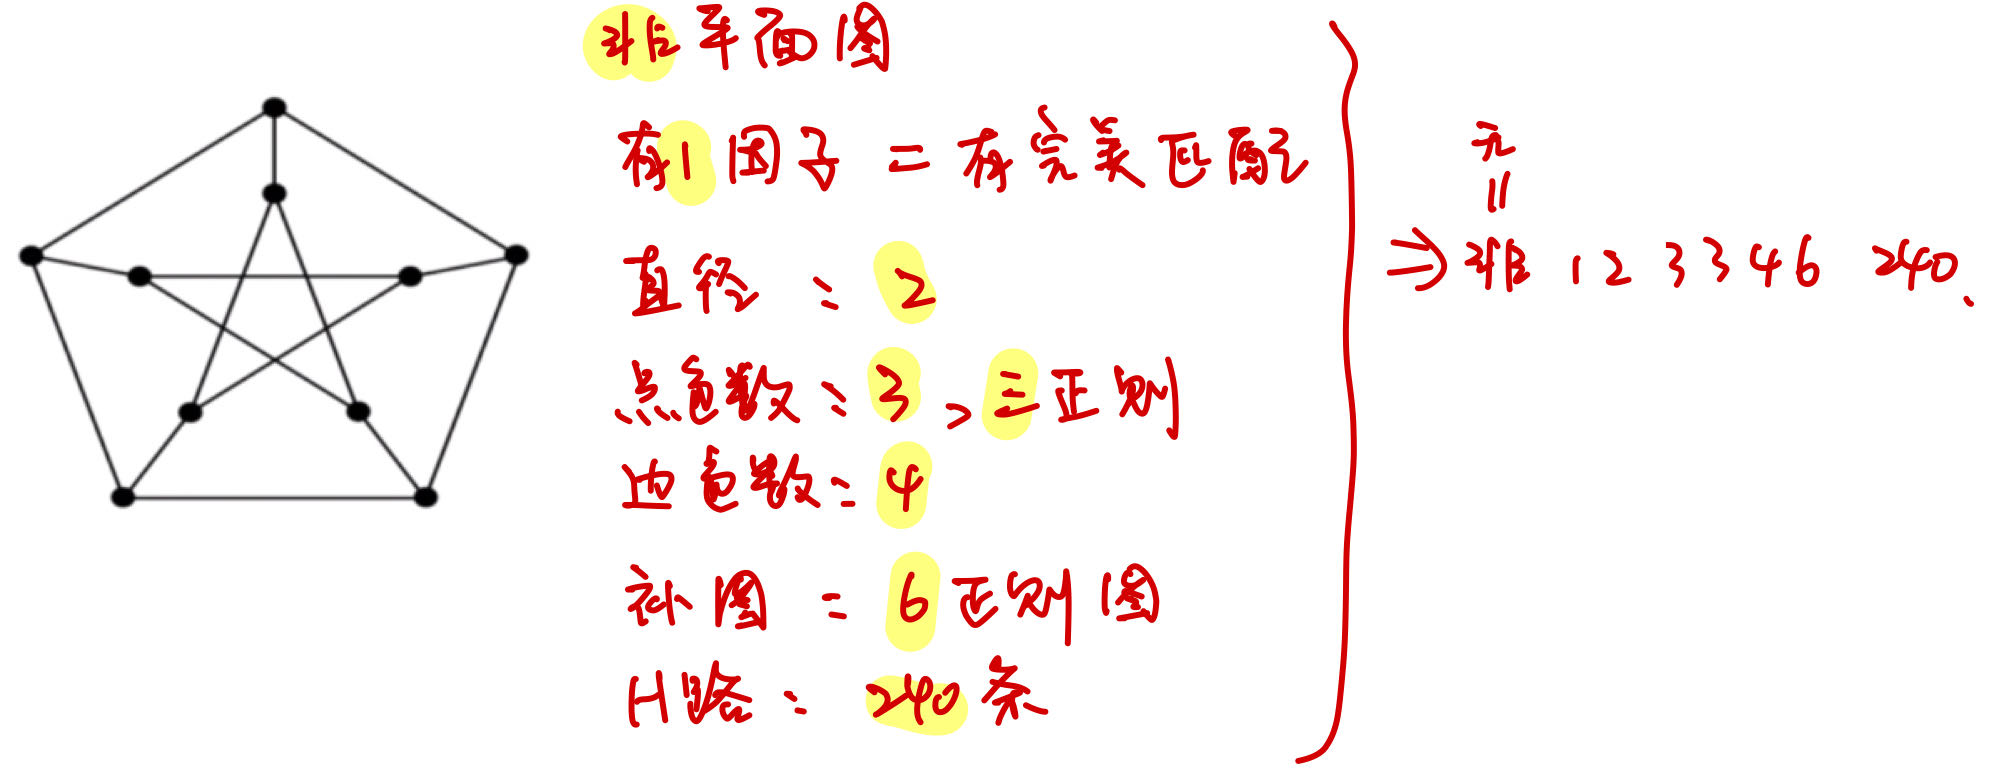 非平面图
有1因子 = 有完美匹配
直径：2
点色数：3、三正则
边色数：4
补图 = 6正则图
H路：240条
无
=
⇒ 非 1 2 3 3 4 6 240.